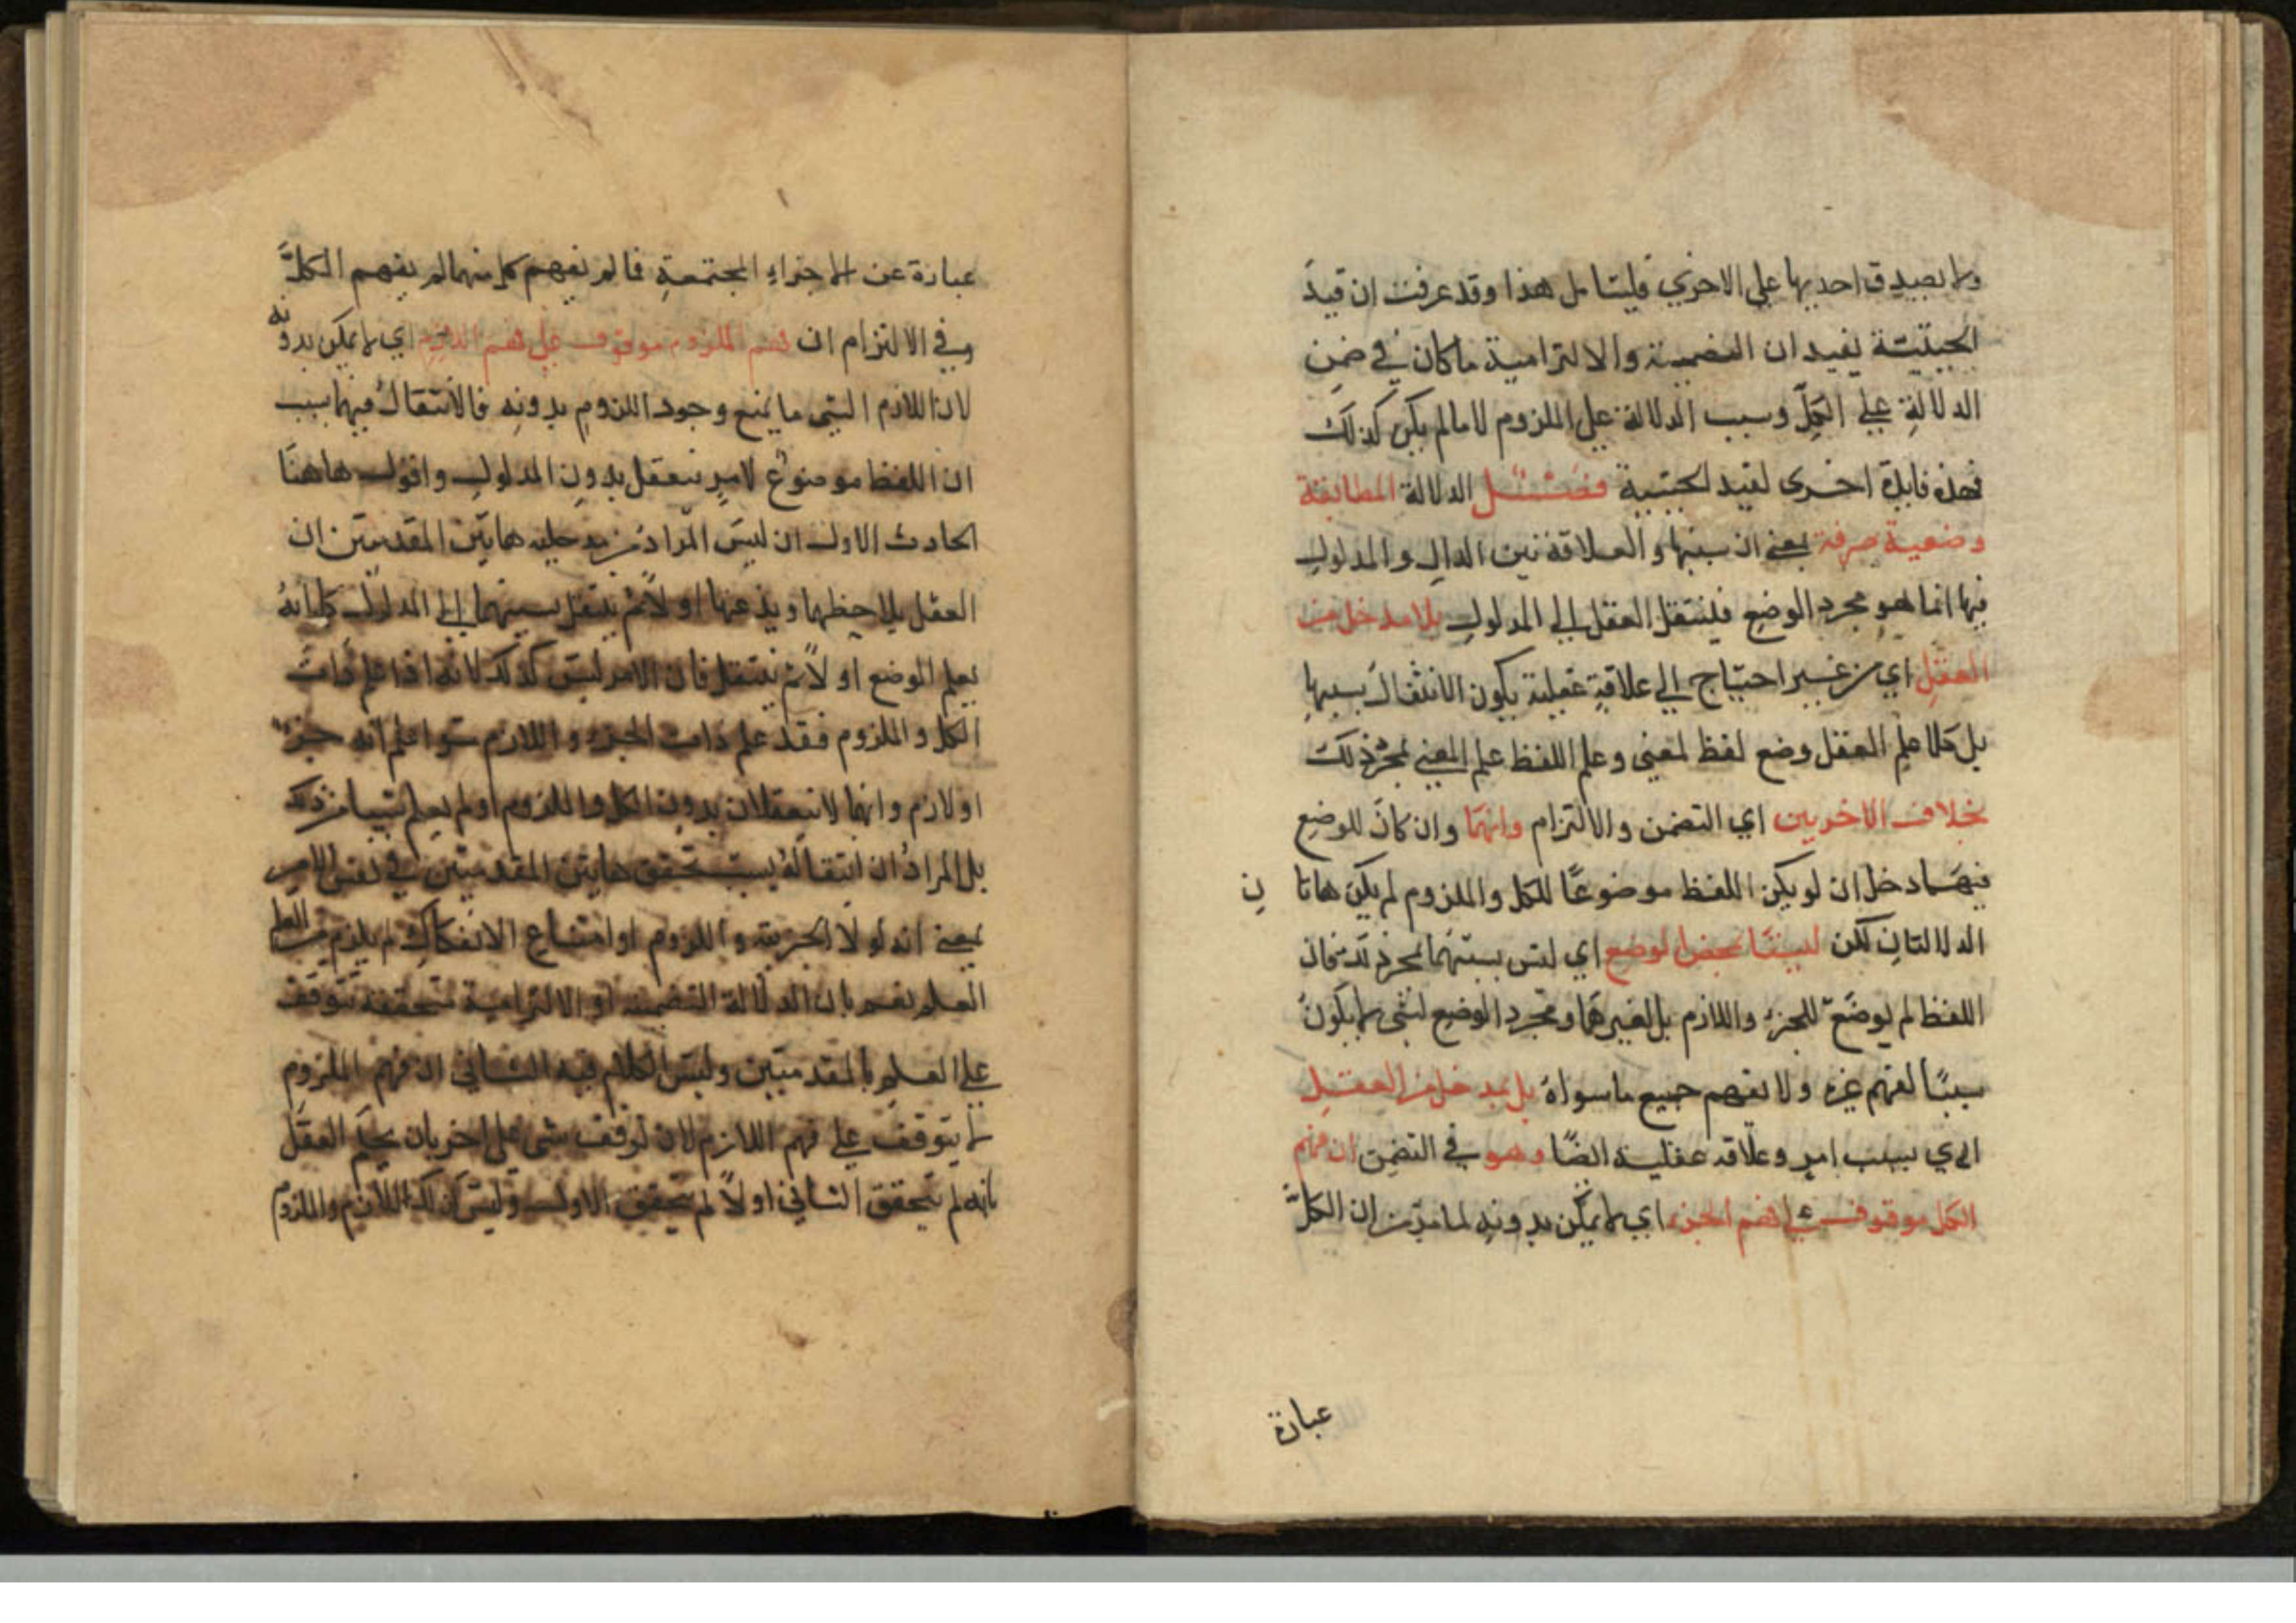 ولا يصدق احديها علي الاخري فليتامل هذا وقد عرفت ان قيد
الحيثية يفيد ان التضمنية والالتزامية ما كان في ضمن
الدلالة علي الكل وسبب الدلالة علي الملزوم لا ما لم يكن كذلك
فهذه فايدة اخرى لقيد الحيثية الدلالة المطابقة
وضعية صرفة بمعني ان سببها والعلاقة بين الدال والمدلول
فيها انما هو مجرد الوضع فلينتقل العقل الي المدلول بلا مدخل من
العقل اي من غير احتياج الي علاقة عقلية يكون الانتقال بسببها
بل كلما علم العقل وضع لفظ لمعني وعلم اللفظ علم المعني بمجرد ذلك
بخلاف الاخريين اي التضمن والالتزام وانهما وان كان للوضع
فيهما دخل ان لو يكن اللفظ موضوعا للكل والملزوم لم يكن هاتا
ن
الدلالتان لكن ليستا بمحض الوضع اي ليس سببهما مجرد
اللفظ لم يوضع للجزء واللازم بل لغيرهما ومجرد الوضع لشي لا يكون
سببا لفهم غيره ولا يفهم جميع ما سواه بل بمدخل من العقل
اي بسبب امر وعلاقة عقلية ايضا وهو في التضمن ان فهم
الكل موقوف علي فهم الجزء اي لا يمكن بدونه لما مر من ان الكل
عبارة
عبارة عن الاجزاء المجتمعة فما لم يفهم كل منهما لم يفهم الكل
وفي الالتزام ان فهم الملزوم موقوف علي فهم اللازم اي لا يمكن بدونه
لان اللازم البتي ما يمنع وجود الملزوم بدونه فالانتقال فيهما بسبب
ان اللفظ موضوع لامر يتعقل بدون المدلول واقول هاهنا
الحادث الاول ان ليس المراد من مدخلية هاتين المقدمتين ان
العقل يلاحظهما ويذعنها اولا ثم ينتقل بسببهما الي المدلول كما انه
يعلم الوضع اولا ثم ينتقل فان الامر ليس كذلك لانه اذا علم ذات
الكل والملزوم فقد علم ذات الجزء واللازم سوا علم انه جزء
او لازم وانهما لا يتعقلان بدون الكل والملزوم او لم يعلم شيا من ذلك
بل المراد ان انتقاله بسبب تحقق هاتين المقدمتين في نفس الامر
بمعني انه لو لا الجزئية واللزوم او امتناع الانفكاك لم يلزم من العلم
العلم نعم بان الدلالة التضمنية او الالتزامية متحققة تتوقف
علي العلم بالمقدمتين وليس الكلام فيه الثاني ان فهم الملزوم
لا يتوقف علي فهم اللازم لان توقف شي علي اخر بان يحكم العقل
بانه لم يتحقق الثاني اولا لم يتحقق الاول وليس كذلك اللازم والملزوم